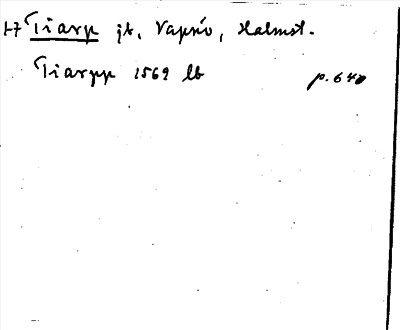 1-7 Tiarp jb, Vapnö, Halmst.
Tiarpp 1569 lb p. 640